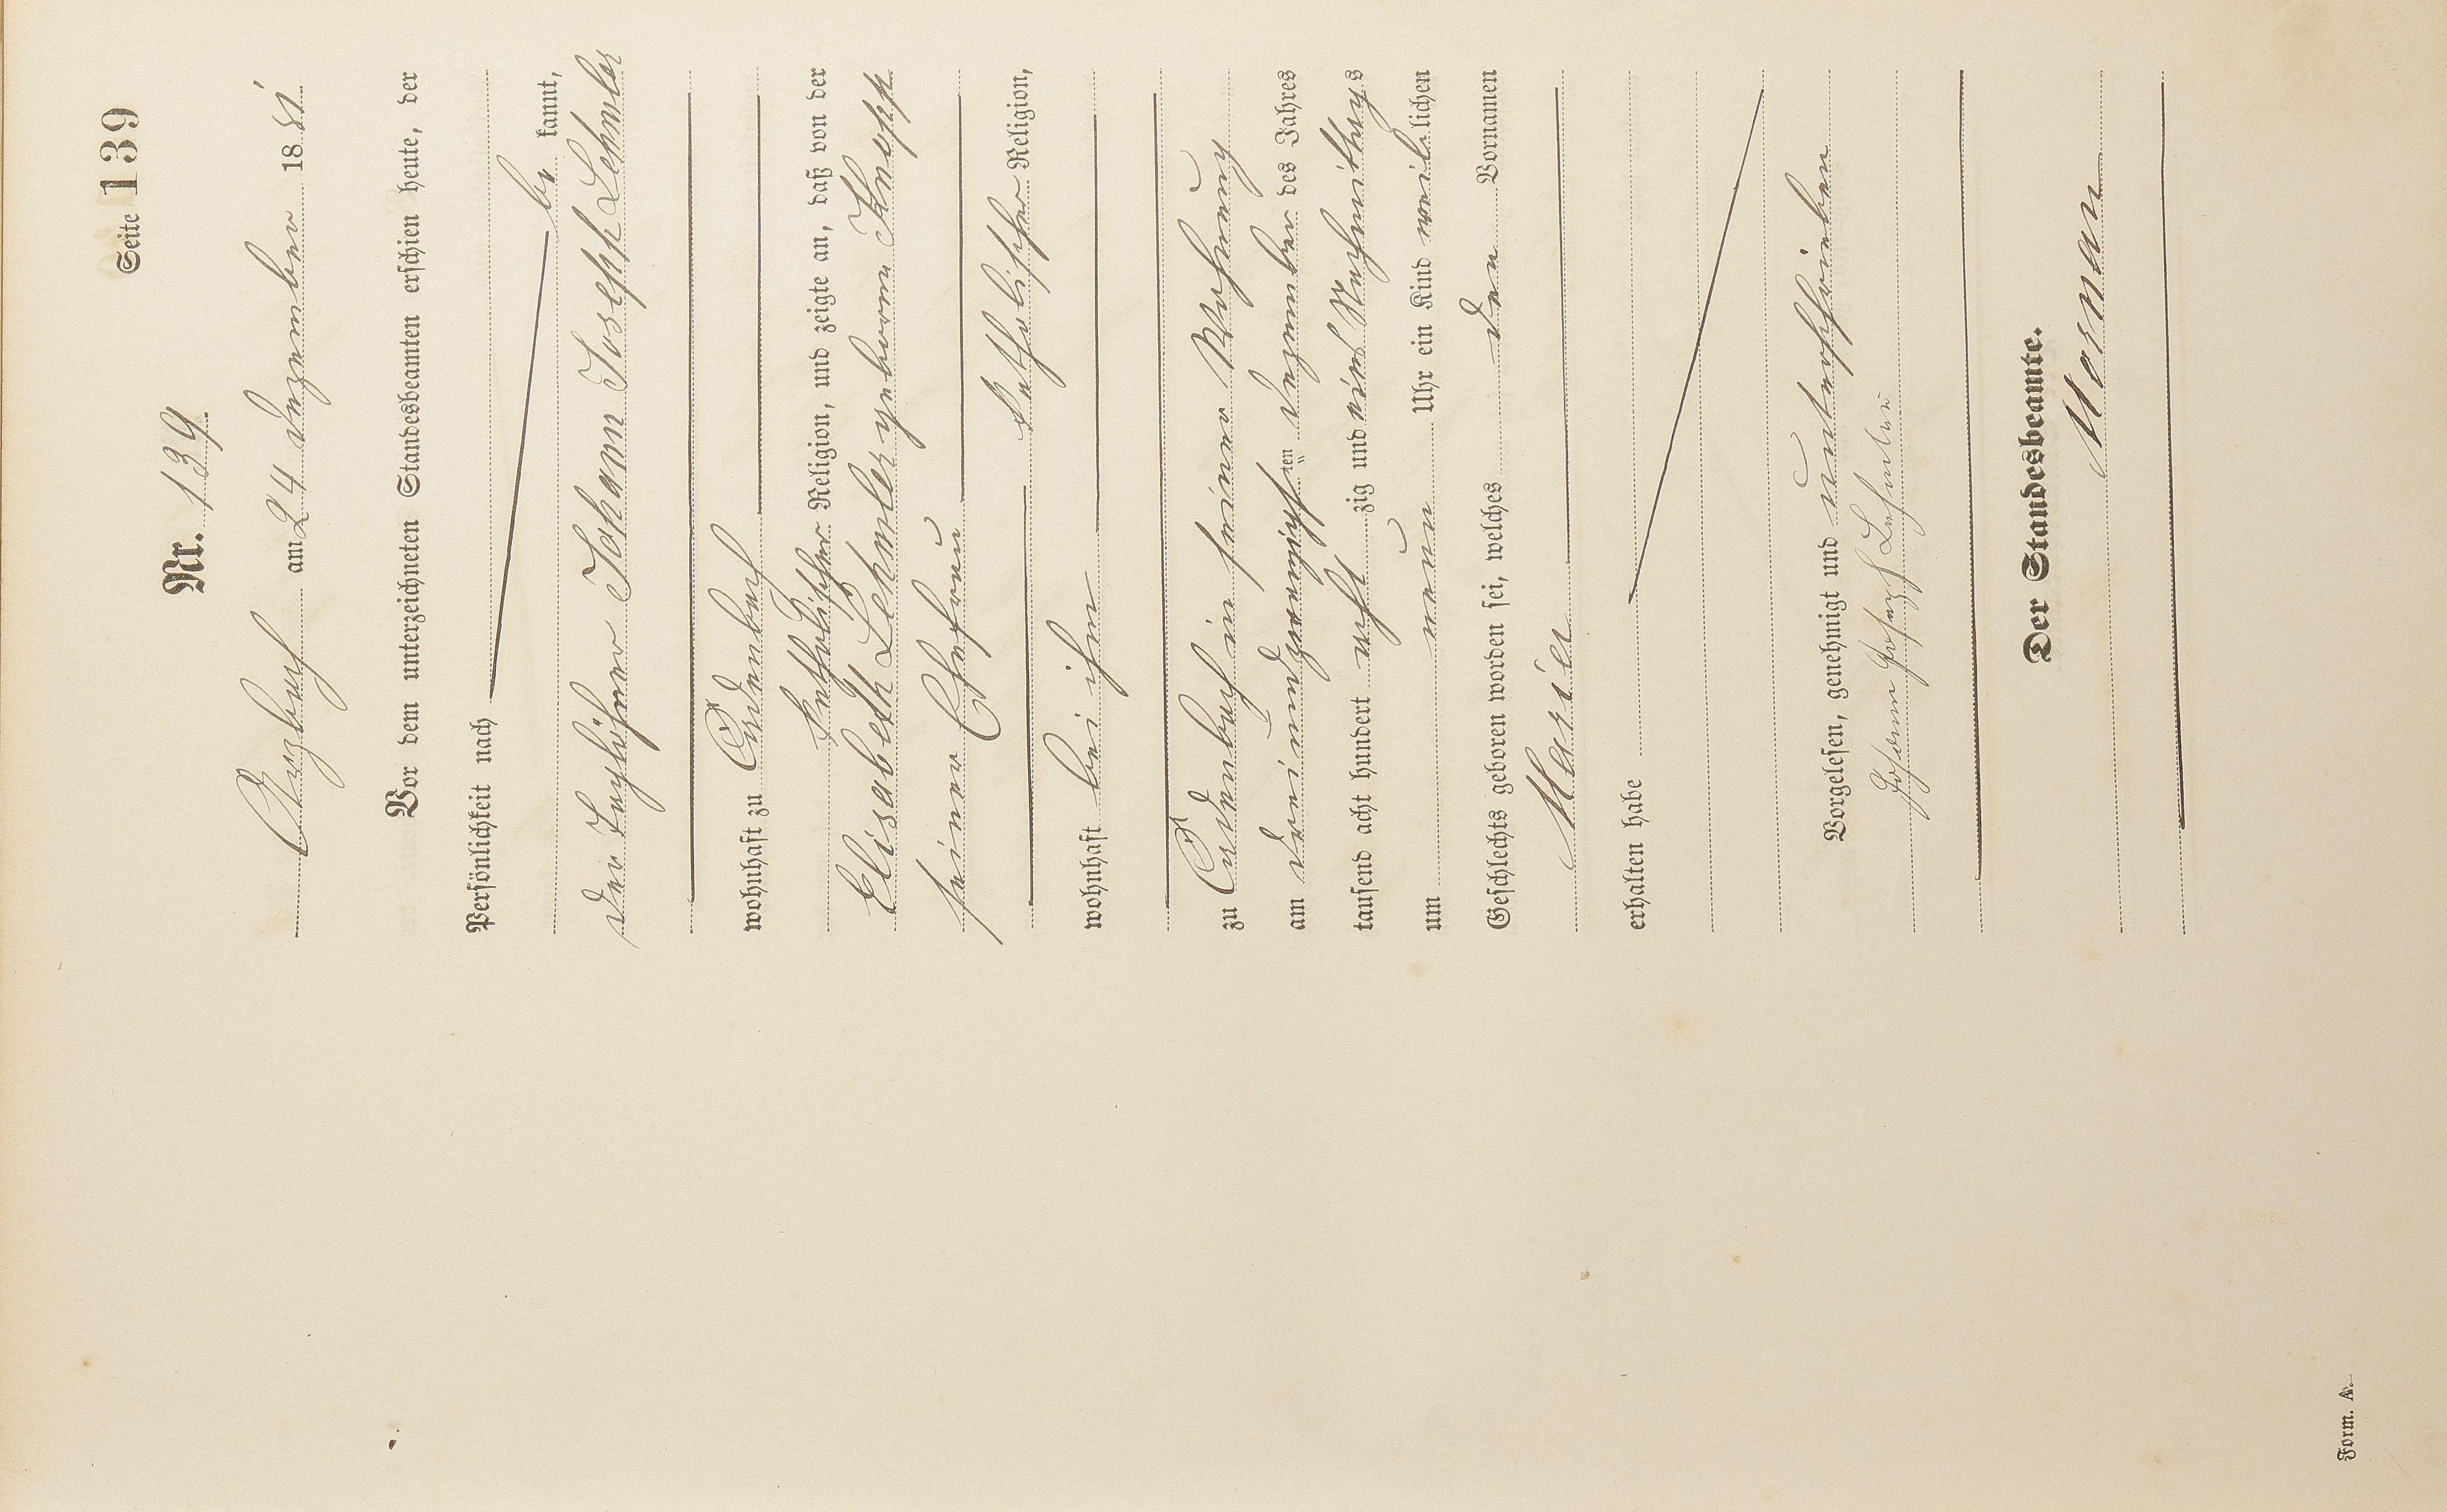 Seite 139
Nr. 139.
Arzbach am 24 Dezember 1881
Vor dem unterzeichneten Standesbeamten erschien heute, der
Persönlichkeit nach
be kannt,
der Taglöhner Johann Joseph Lehmler
wohnhaft zu Cadenbach
katholischer Religion, und zeigte an, daß von der
Elisabeth Lehmler geborene Knopp
seiner Ehefrau
katholischer Religion,
wohnhaft bei ihm
zu Cadenbach in seiner Wohnung
am dreiundzwanzigsten Dezember des Jahres
tausend acht hundert acht zig und eins Nachmittags
um neun Uhr ein Kind weib lichen
Geschlechts geboren worden sei, welches den Vornamen
Maria
erhalten habe
Vorgelesen, genehmigt und unterschrieben
Johann Joseph Lehmler
Der Standesbeamte.
Form. A.